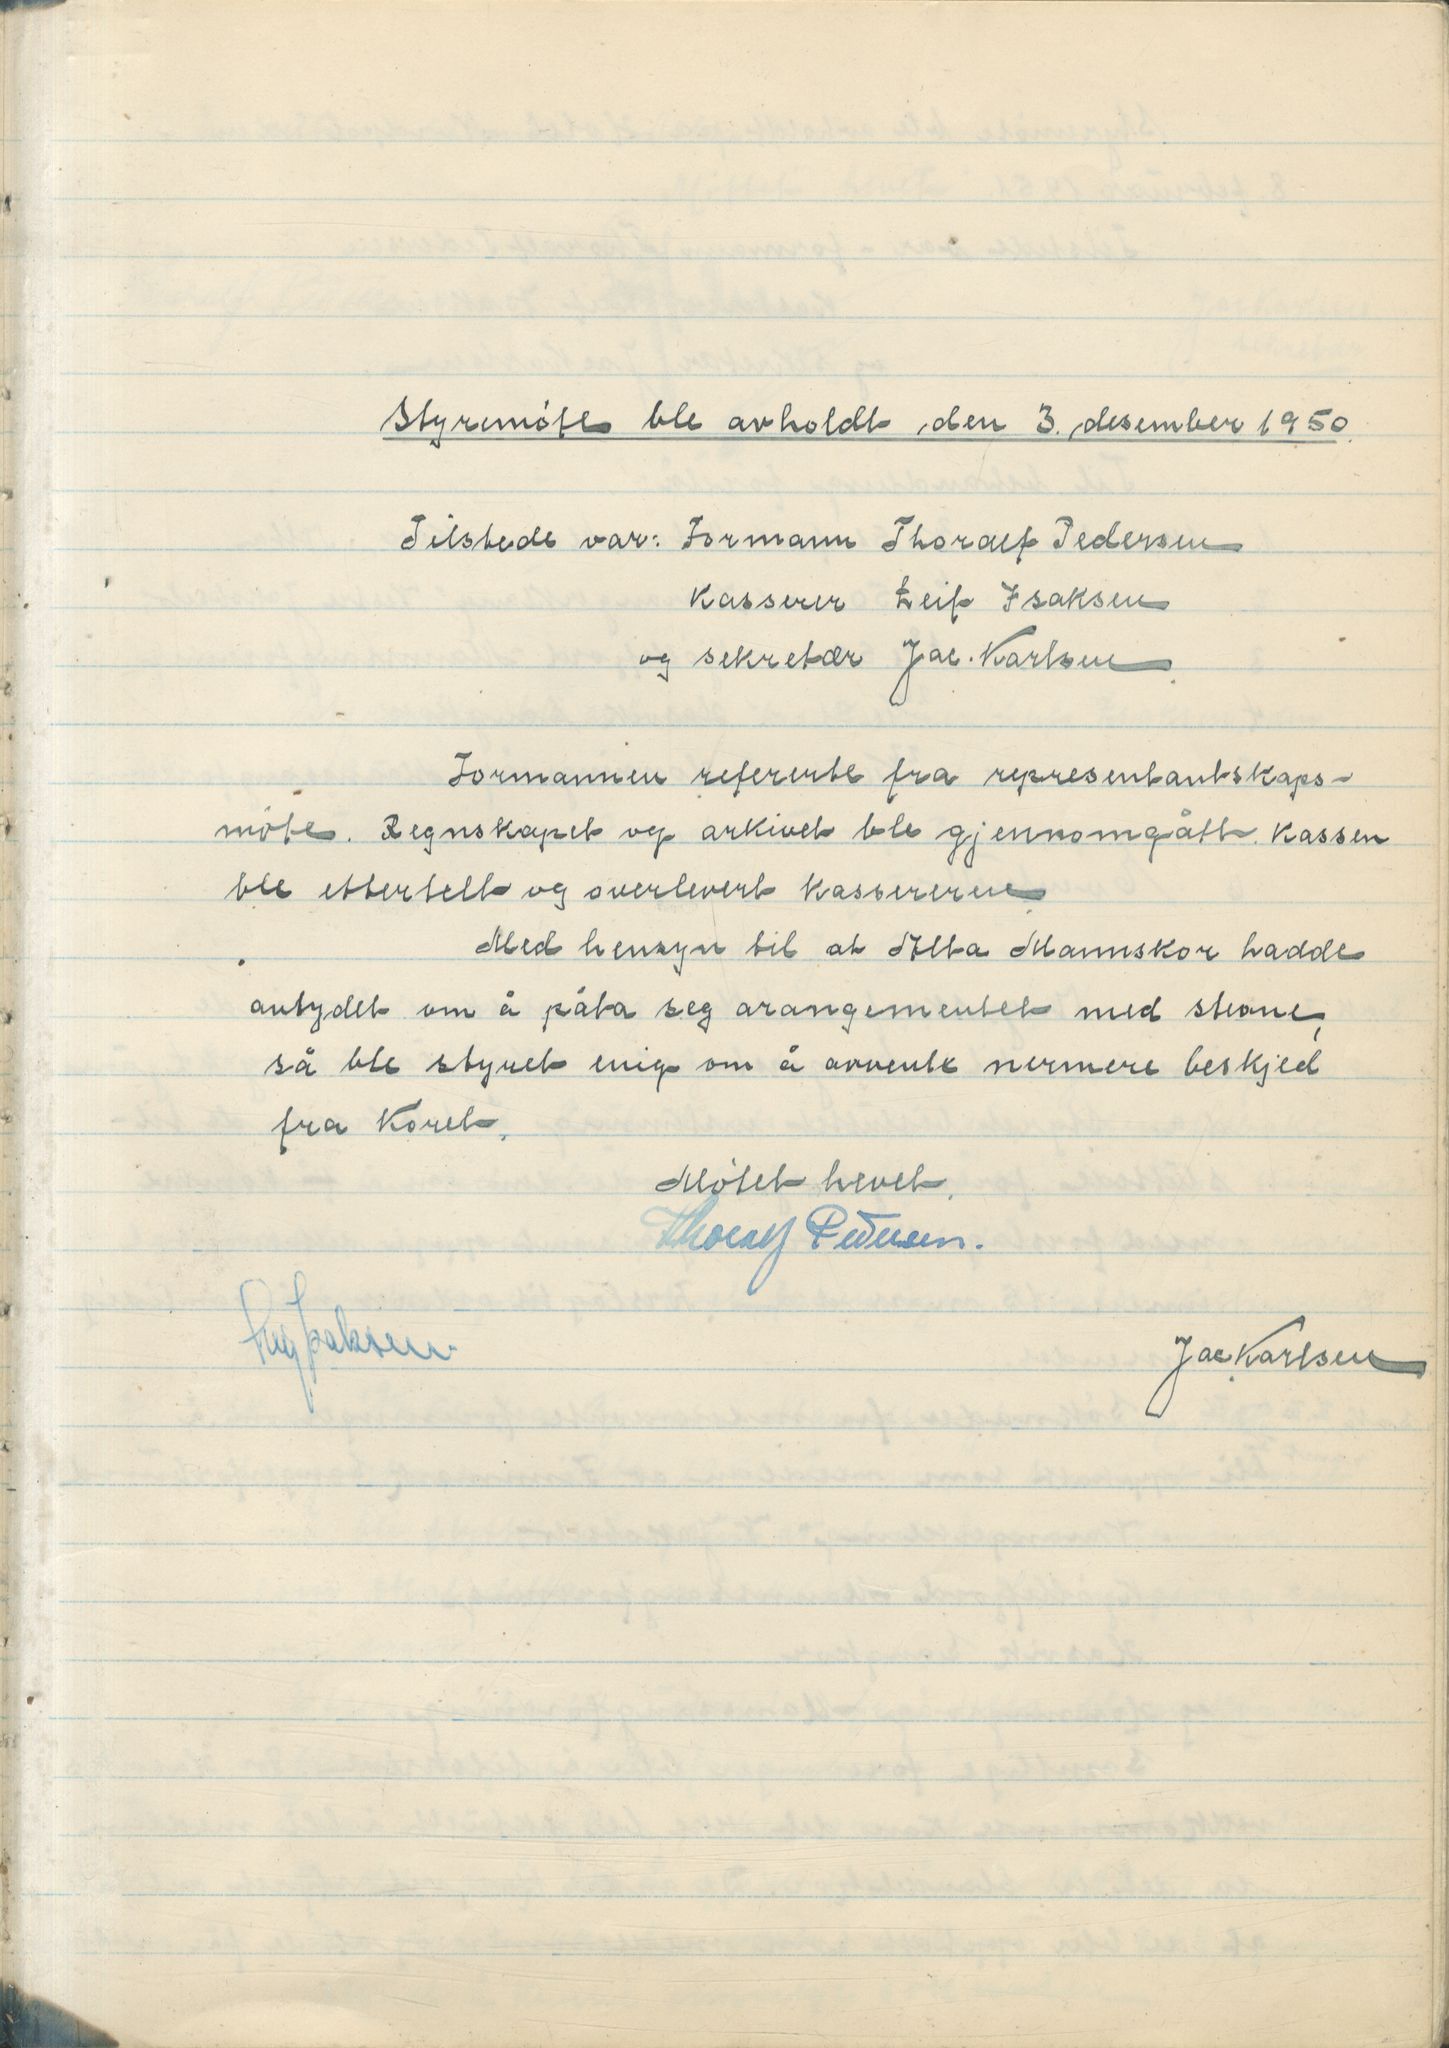 Styremöte ble avholdt den 3. desember 1950.
Tilstede var: Formann Thoralf Pedersen
Kasserer Leif Isaksen
og sekretær Jac. Karlsen.
Formannen referente fra representantskaps-
möte. Regnskapet og arkivet ble gjennomgått. Kassen
ble ettertelt og overlevert kassereren
Med hensyn til at Alta Mannskor hadde
antydet om å påta seg arangementet med stevne,
så ble styret enig om å avvente nermere beskjed
fra Koret.
Mötet hevet.
Thoralf Pedersen.
Leif Isaksen.
Jac. Karlsen